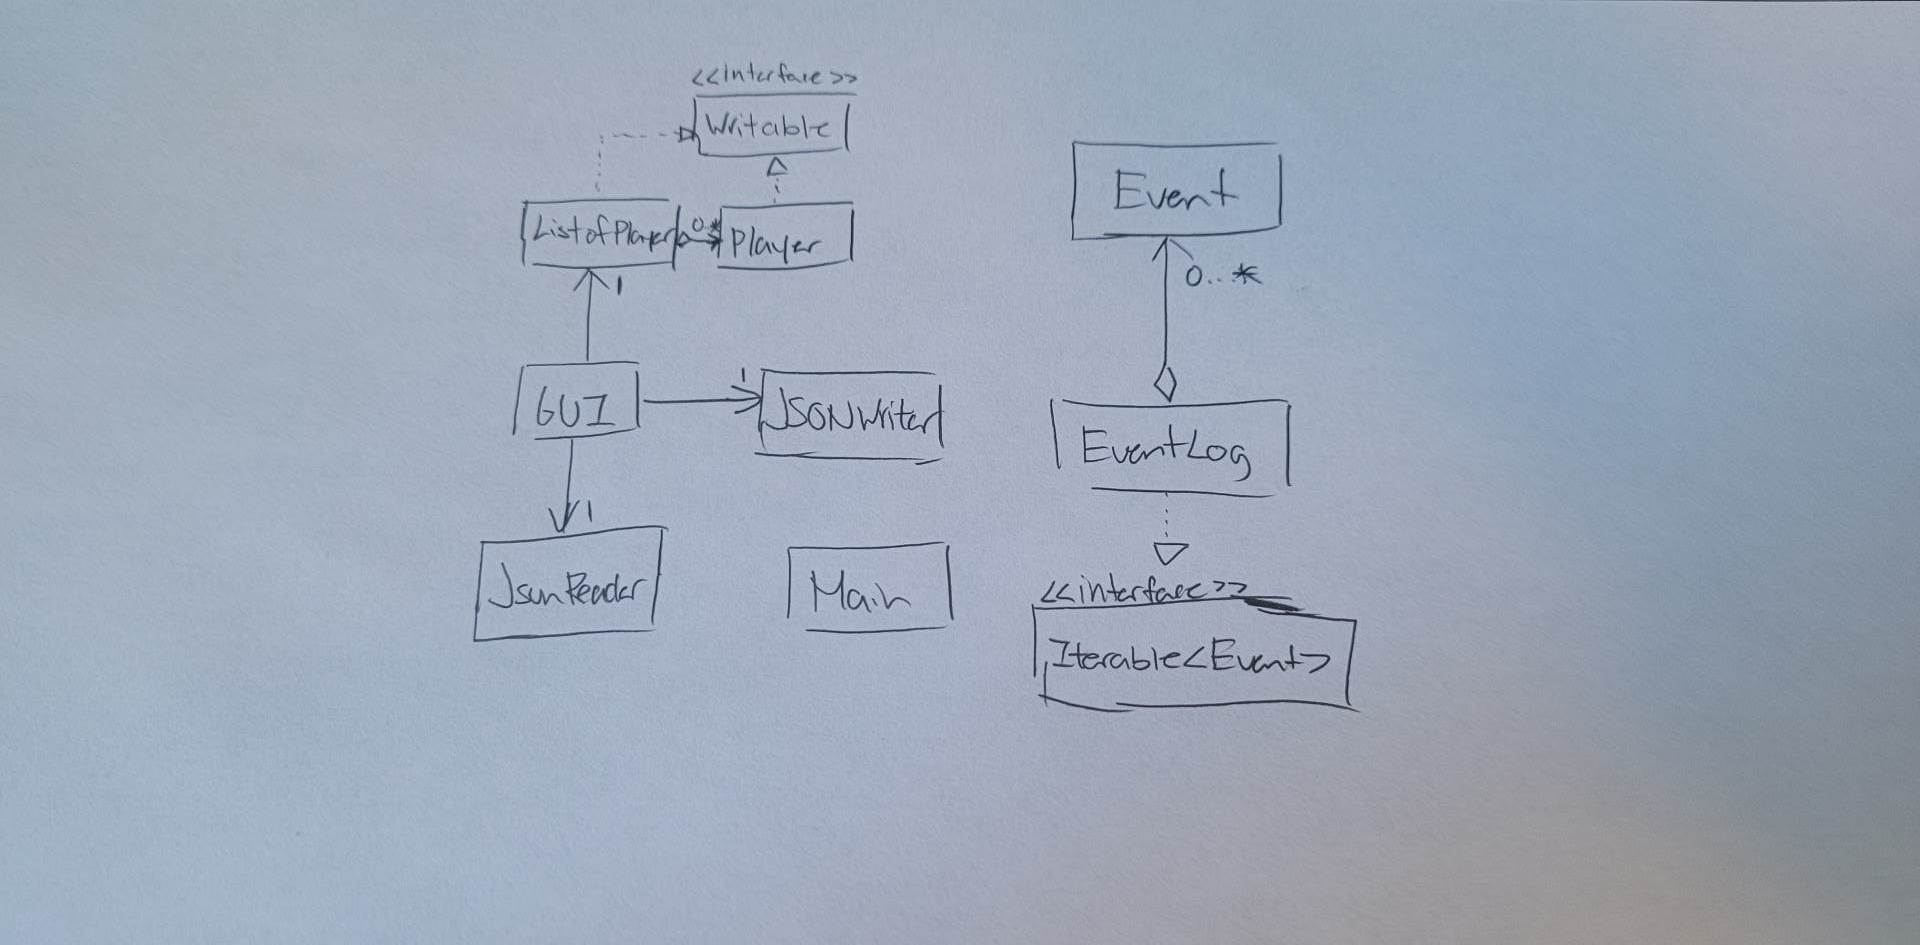 <<interface>>
Writable
ListofPlayer
0..*
Player
1
GUI
1
JSONWriter
1
JsonReader
Main
Event
0...*
EventLog
<<interface>>
Iterable<Event>